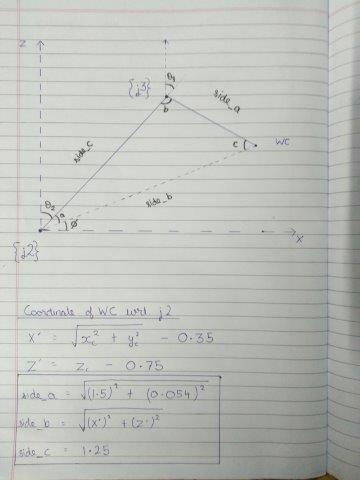 Z
θ3
{j3}
side_a
b
side_c
c
WC
θ2
a
side_b
ø
X
{j2}
Coordinate of WC wrt j2
X' = √x_c² + y_c² - 0.35
Z' = z_c - 0.75
side_a = √(1.5)² + (0.054)²
side_b = √(X')² + (z')²
side_c = 1.25